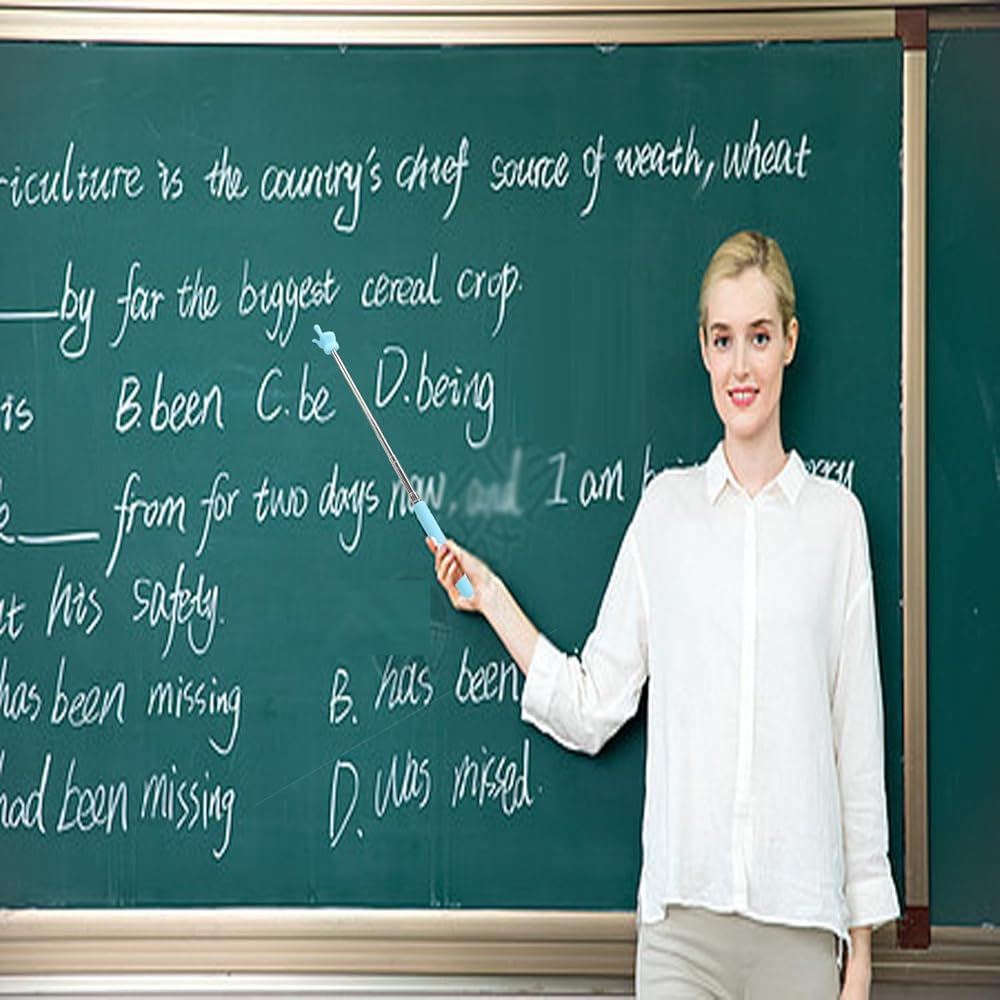 riculture is the country's chief source of weath, wheat
____by far the biggest cereal crop.
is B.been C.be D.being
____ from for two days now, and I am
his safety.
has been missing B. has been
had been missing D. was missed.